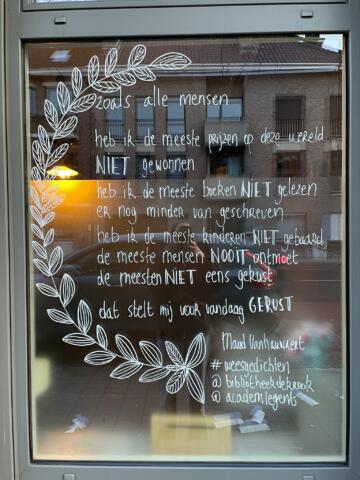 zoals alle mensen
heb ik de meeste prijzen op deze wereld
NIET gewonnen
heb ik de meeste boeken NIET gelezen
er nog minder van geschreven
heb ik de meeste kinderen NIET gebaard
de meeste mensen NOOIT ontmoet
de meesten NIET eens gekust
dat stelt mij voor vandaag GERUST
Maud Vanhauwaert
#weesgedichten
@bibliotheekdekrook
@academiegent